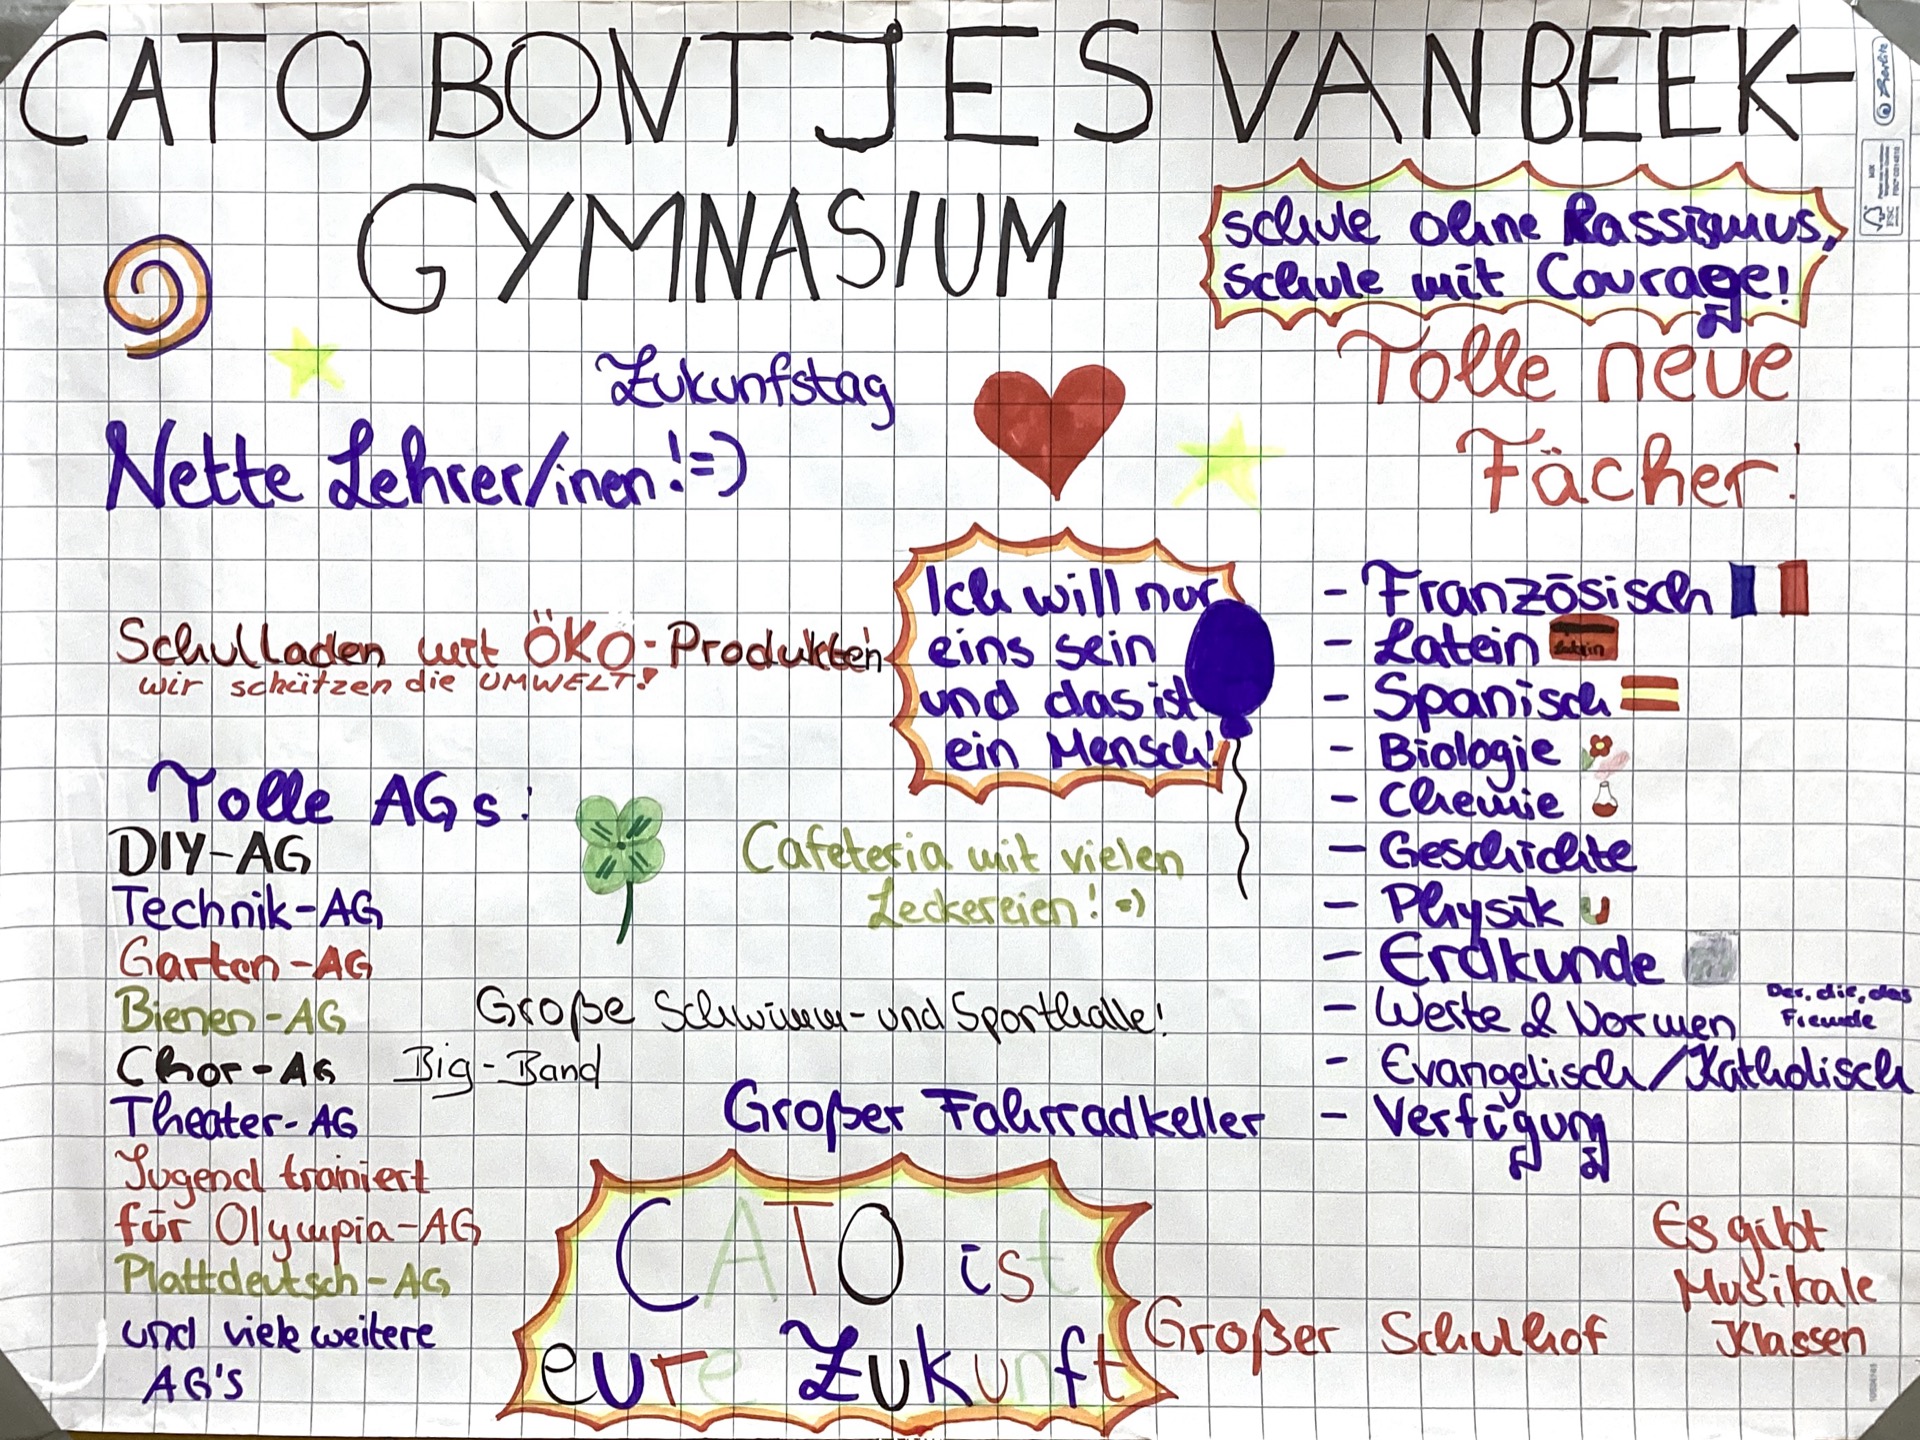 CATO BONTJES VAN BEEK-
GYMNASIUM
schule ohne Rassismus,
schule mit Courage!
Zukunfstag
Nette Lehrer/inen!=)
Tolle neue
Fächer:
Ich will nur
eins sein
und das ist
ein Mensch!
Schulladen mit ÖKO-Produkten
wir schützen die UMWELT!
- Französisch
- Latein
Latein
- Spanisch
- Biologie
- Chemie
- Geschichte
- Physik
- Erdkunde
- Werte & Normen
Der, die, das
Fremde
- Evangelisch/Katholisch
- Verfügung
Tolle AGs:
DIY-AG
Technik-AG
Garten-AG
Bienen-AG
Chor-AG
Big-Band
Theater-AG
Jugend trainiert
für Olympia-AG
Plattdeutsch-AG
und viele weitere
AG's
Cafeteria mit vielen
Leckereien! =)
Große Schwimm- und Sporthalle!
Großer Fahrradkeller
CATO ist
eure Zukunft
Großer Schulhof
Es gibt
Musikale
Klassen
Berlitz
MIX
FSC